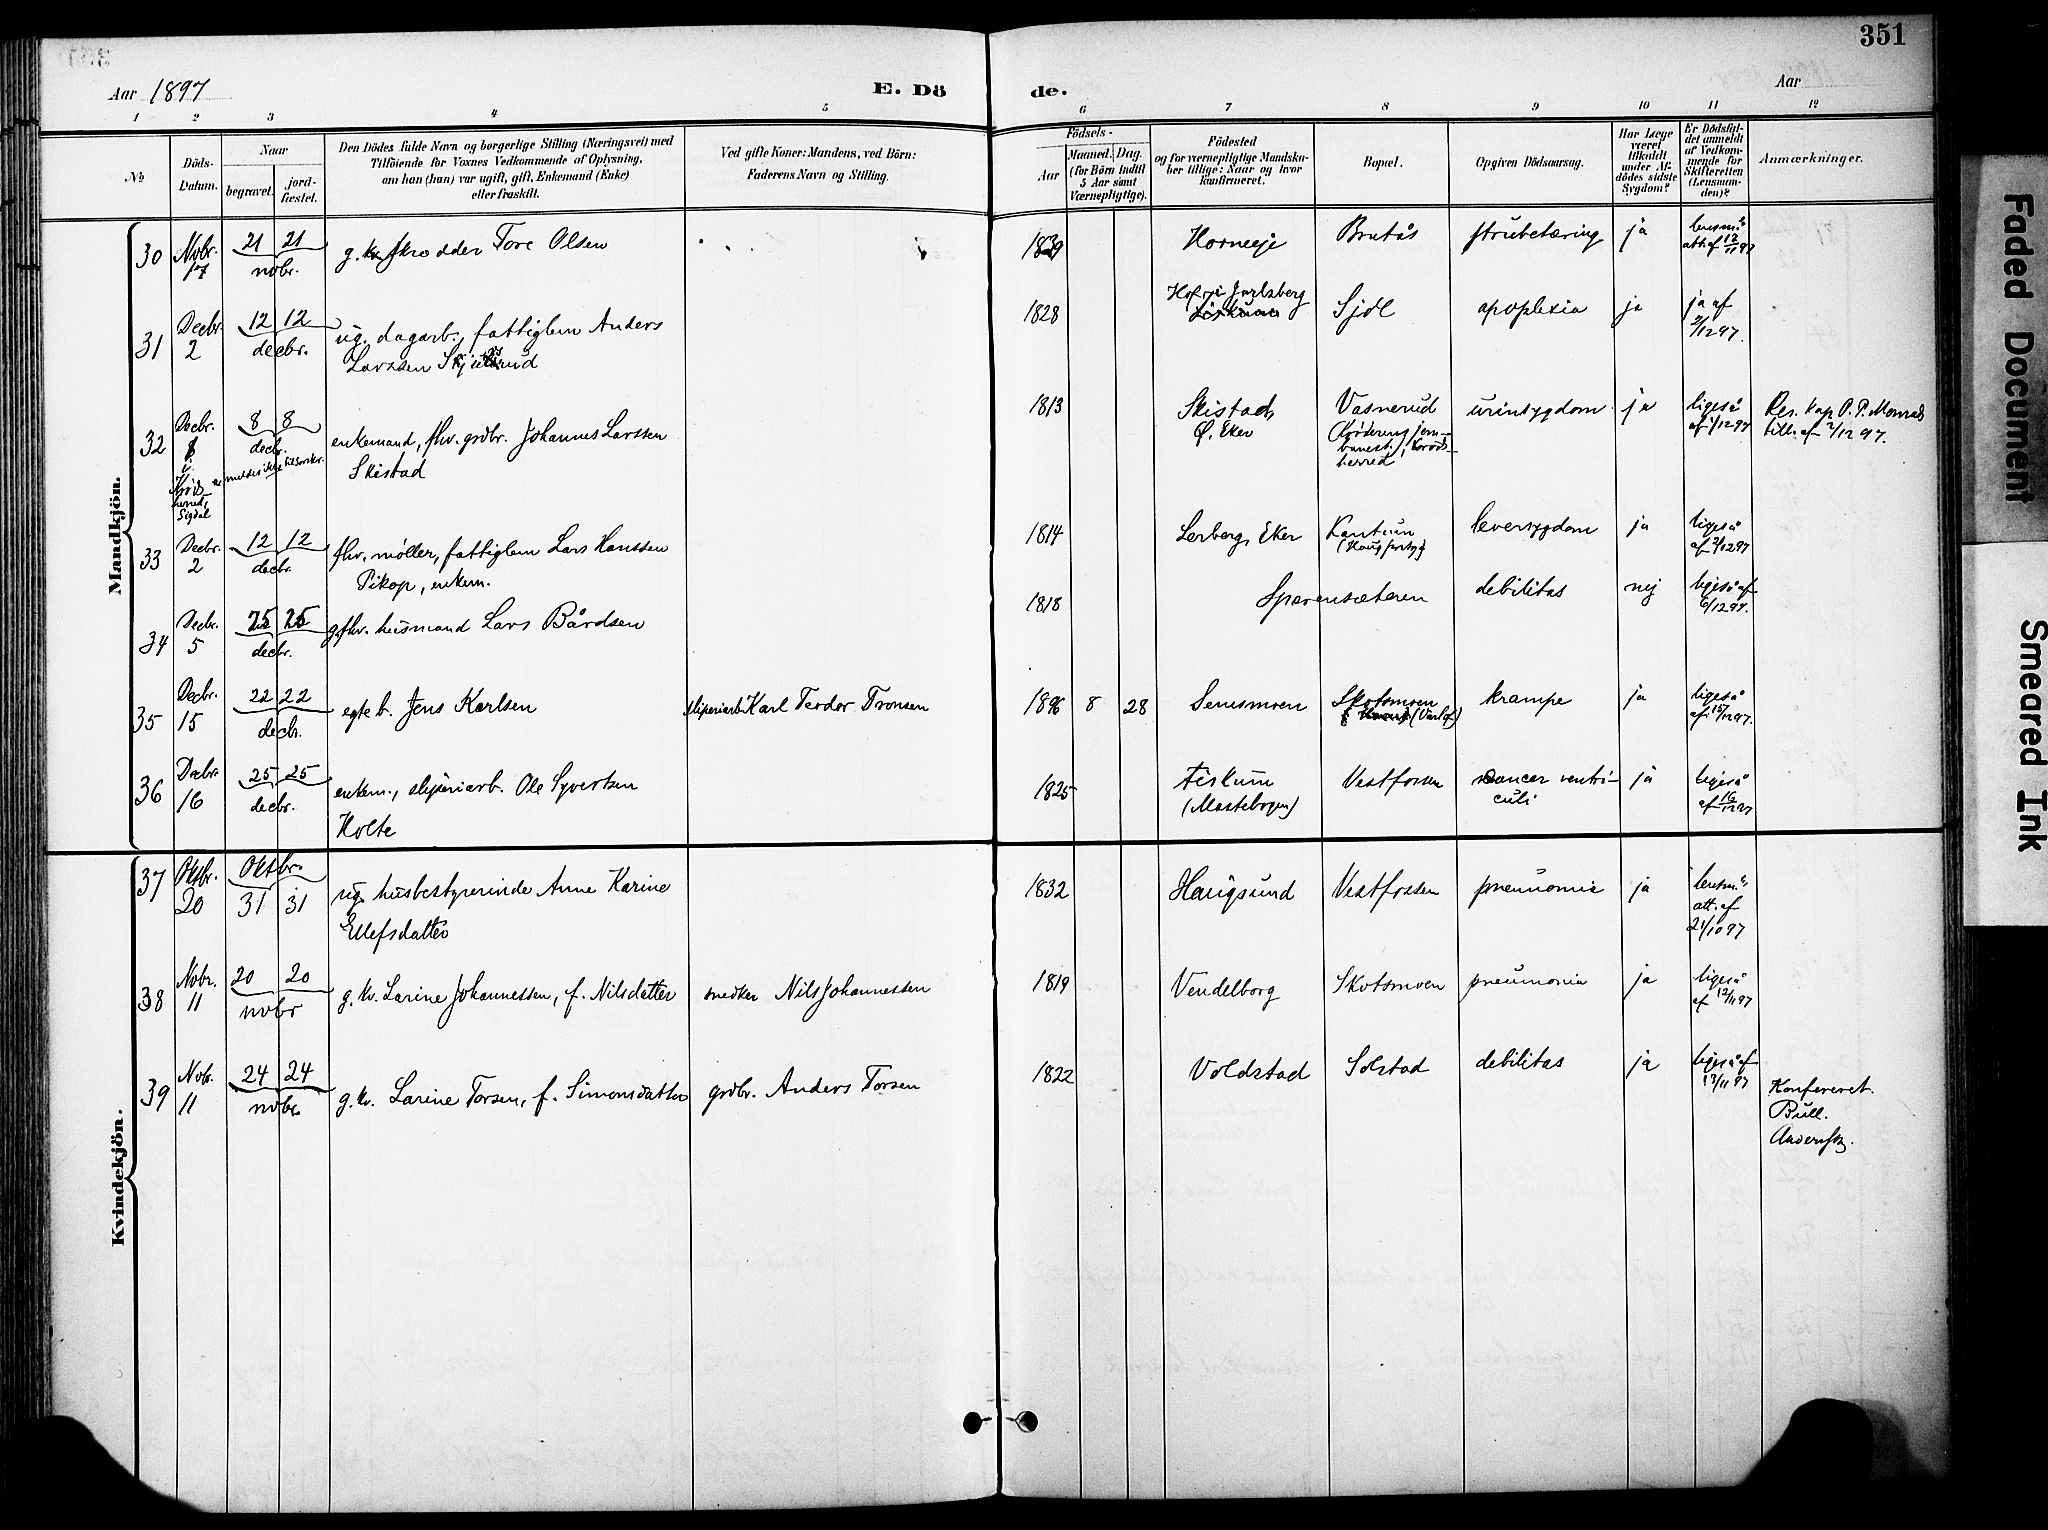 351
Aar 1897
E. Dö
de.
Aar
1 2 3 4 5 6 7 8 9 10 11 12
No
Döds-Datum.
Naar
begravet.
jord-fæstet.
Den Dödes fulde Navn og borgerlige Stilling (Næringsvei) med
Tilföiende for Voxnes Vedkommende af Oplysning,
om han (hun) var ugift, gift, Enkemand (Enke)
eller fraskilt.
Ved gifte Koner: Mandens, ved Börn:
Faderens Navn og Stilling.
Födsels-
Aar
Maaned. Dag.
(for Börn indtil
5 Aar samt
Værnepligtige).
Födested
og for værnepligtige Mandska-
ber tillige: Naar og hvor
konfirmeret.
Bopæl.
Opgiven Dödsaarsag.
Har Læge
været
tilkaldt
under Af-
dödes sidste
Sygdom?
Er Dödsfal-
det anmeldt
af Vedkom-
mende for
Skifteretten
(Lensman-
den)?
Anmærkninger.
Mandkjön.
30 Nobr. 17 21 21 nobr. g. skrædder Tore Olsen 1839 Horneeje Brutås strubetæring ja lensm.s att. af 17/11 97
31 Decbr 2 12 12 decbr. ug. dagarb., fattiglem Anders
Larssen 1828 Hof i Jarlsberg Sjöl apoplexia ja ja af 2/12 97.
32 Decbr. 8 8 decbr. enkemand, fhv. grdbr. Johannes Larssen
Skistad 1813 Skistad, Ø. Eker Vasnerud (Krøderens jern-
banest.), Krøds-
herred urinsygdom ja ligeså af 1/12 97 Res. Kap. O. P. Monrads
till. af 2/12 97.
i Krøds-
herred,
Sigdal
33 Decbr. 2 12 12 decbr. fhv. møller, fattiglem Lars Hanssen
Pikop, enkem. 1814 Lerberg, Eker leversygdom ja ligeså af 2/12 97
34 Decbr. 5 25 25 decbr. g. fhv. husmand Lars Bårdsen 1818 Spærensæteren debilitas nej ligeså af 6/12 97.
35 Decbr. 15 22 22 decbr. egte b. Jens Karlsen sliperiarb. Karl Teodor Tronsen 1896 8 28 Semsmoen Skotsmoen krampe ja ligeså af 15/12 97.
36 Decbr 16 25 25 decbr. enkem., sliperiarb. Ole Syvertsen
Holte 1825 Fiskum Vestfossen cancer ventri-
culi ja ligeså af 16/12 97
Kvindekjön.
37 Oktbr. 20 Oktbr. 31 31 ug. husbestyrerinde Anne Karine
Ellefsdatter 1832 Haugsund Vestfossen pneumonia ja lensm.s
att. af
21/10 97
38 Nobr. 11 20 20 nobr g. kv. Larine Johannessen, f. Nilsdatter snedker Nils Johannessen 1819 Vendelborg Skotsmoen pneumonia ja ligeså
af 12/11 97
39 Nobr. 11 24 24 nobr. g. kv. Larine Torsen, f. Simonsdatter grdbr. Anders Torsen 1822 Voldstad Solstad debilitas ja ligeså af
12/11 97
Konfereret.
Bull.
Faded Document
Smeared Ink